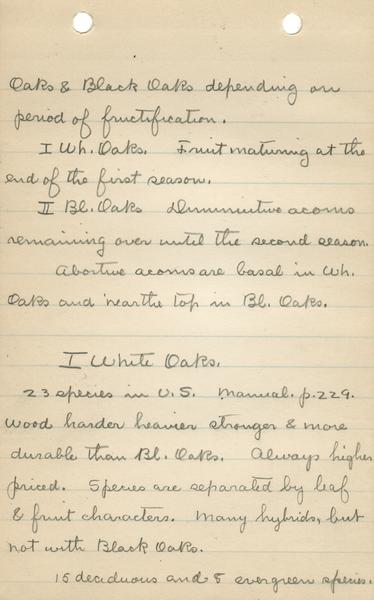 Oaks & Black Oaks depending on
period of fructification.
I Wh. Oaks. Fruit maturing at the
end of the first season.
II Bl. Oaks Diminutive acorns
remaining over until the second season.
Abortive acorns are basal in Wh.
Oaks and near the top in Bl. Oaks.
I White Oaks.
23 species in U.S. Manual. p. 229.
Wood harder heavier stronger & more
durable than Bl. Oaks. Always higher
priced. Species are separated by leaf
& fruit characters. Many hybrids, but
not with Black Oaks.
15 deciduous and 8 evergreen species.